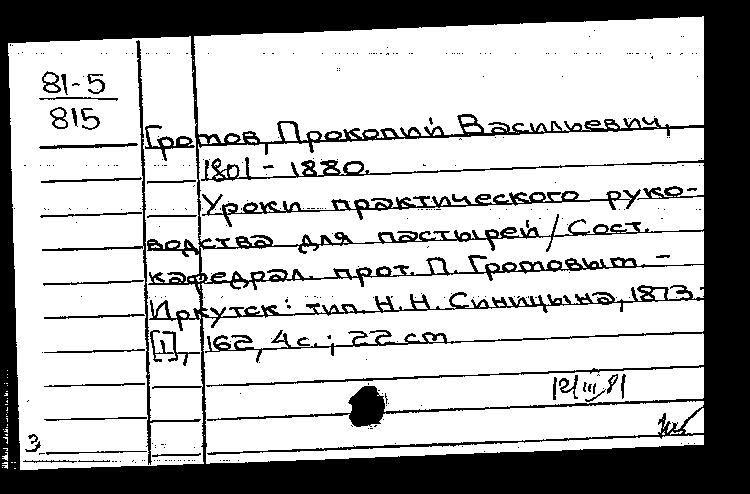 81-5
815
Громов, Прокопий Васильевич,
1801 - 1880.
Уроки практического руко-
водства для пастырей / Сост.
кафедрал. прот. П. Громовым. -
Иркутск: тип. Н.Н. Синицына, 1873. -
[1], 162, 4 с.; 22 см
12/III 81
3